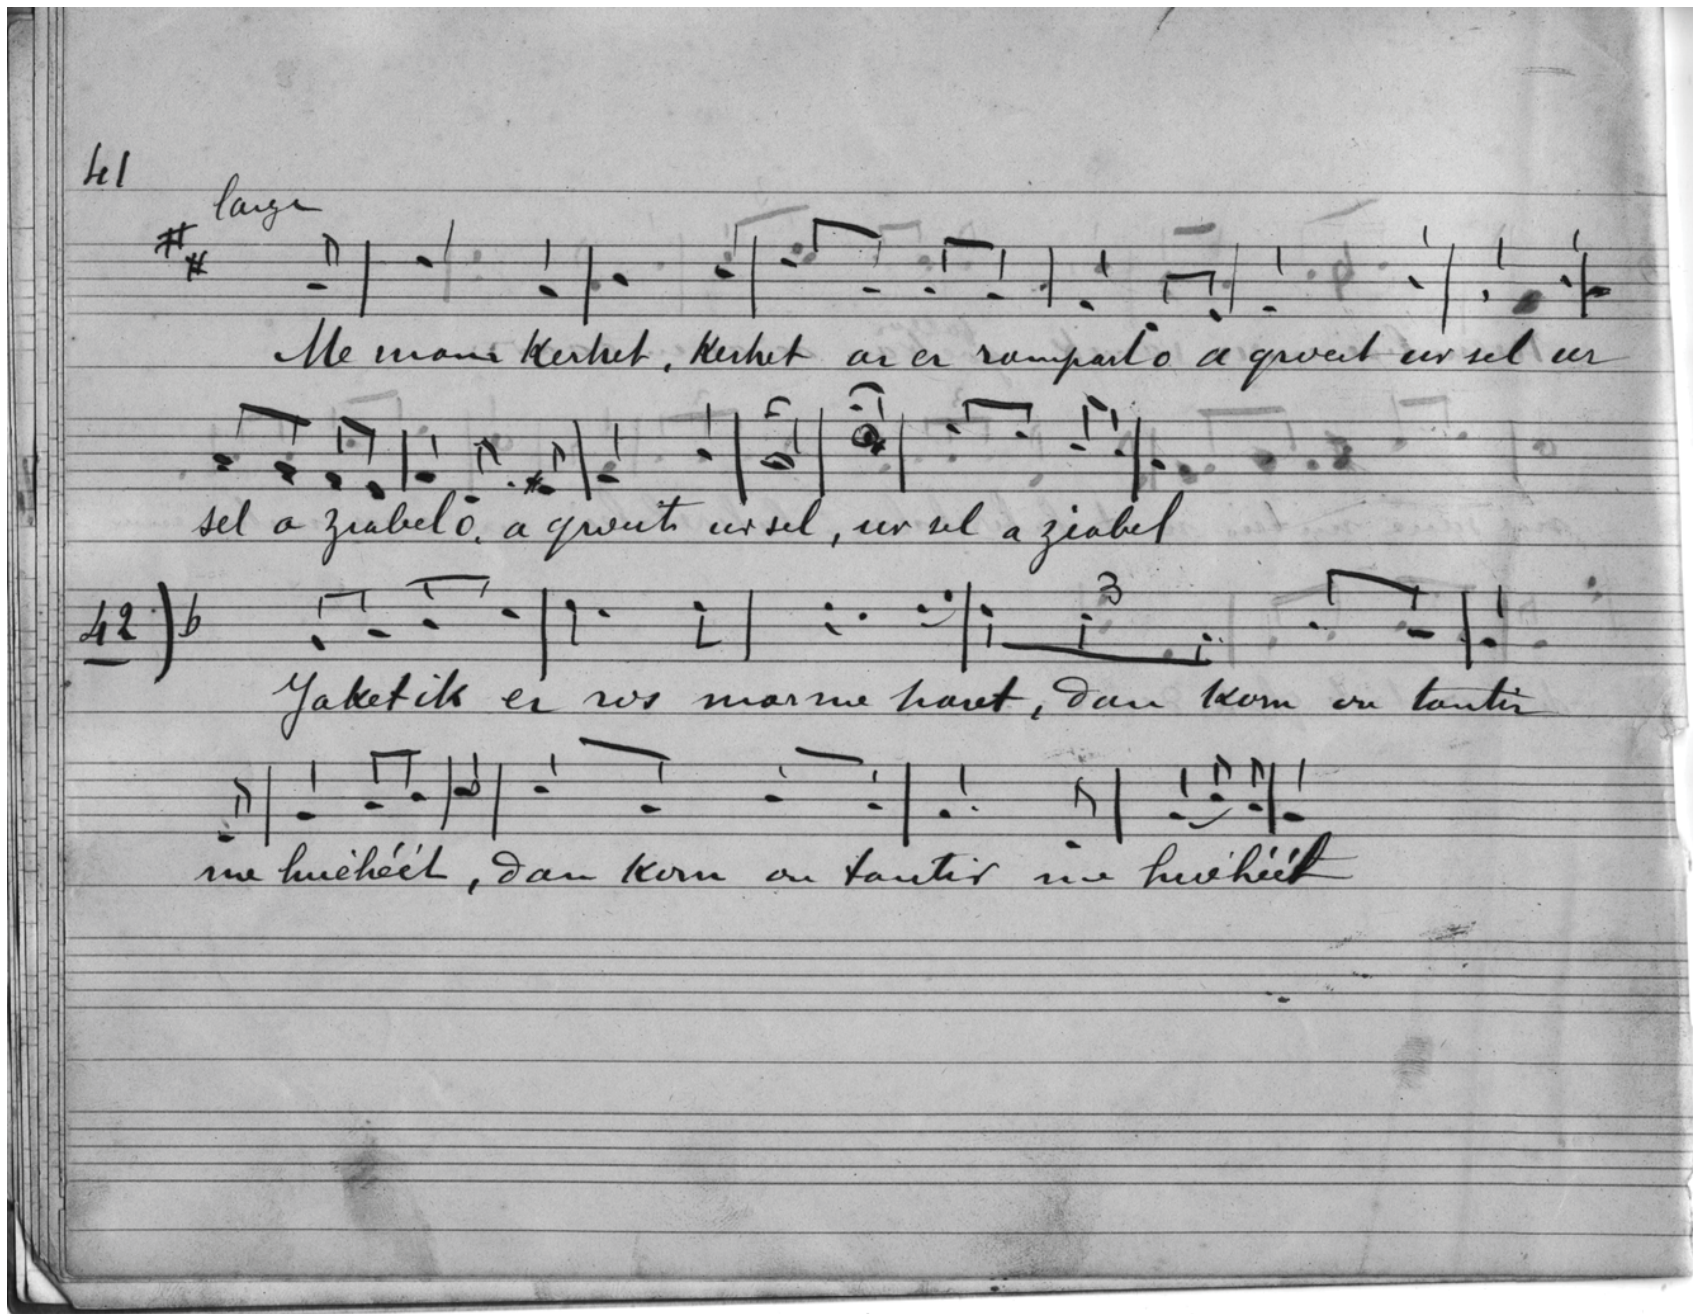 41
large
Me mam Kerhet, Kerhet ar er rampart o a groeit ur sel ur
sel a ziabel o, a groeit ur sel, ur sel a ziabel
42) b
Jaketik er ros mar me haret, dan kom on tantir
3
me huéhéét, dan kom on tantir me huéhéét